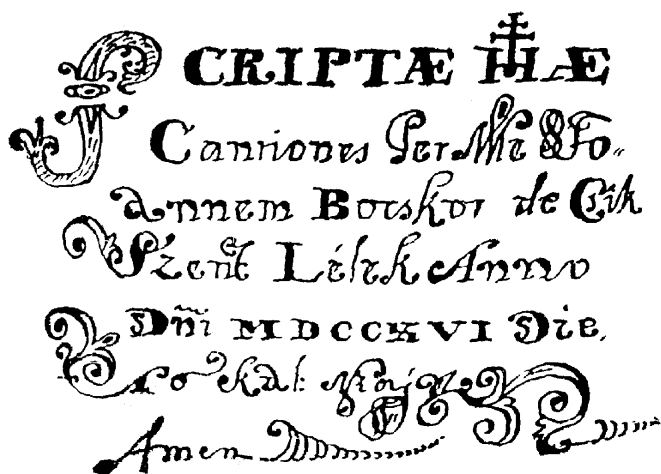 SCRIPTÆ HÆ
Cantiones Per Me Jo=
annem Botskor de Csik
Szent Lélek Anno
Dñi MDCCXVI Die.
kal: Maji
Amen